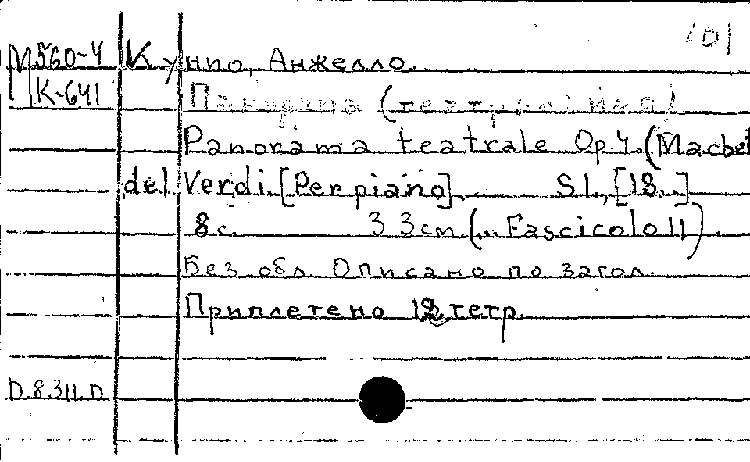 101
М560-4 Кунио, Анжелло.
К-641
Панорама (театральная)
Panorama teatrale Op 4. (Macbet
del Verdi. [Per piano]. S.l., [18..]
8 с. 33 см (.. Fascicolo 11).
Без обл. Описано по загол.
Приплетено 12 тетр.
D.8.311.D